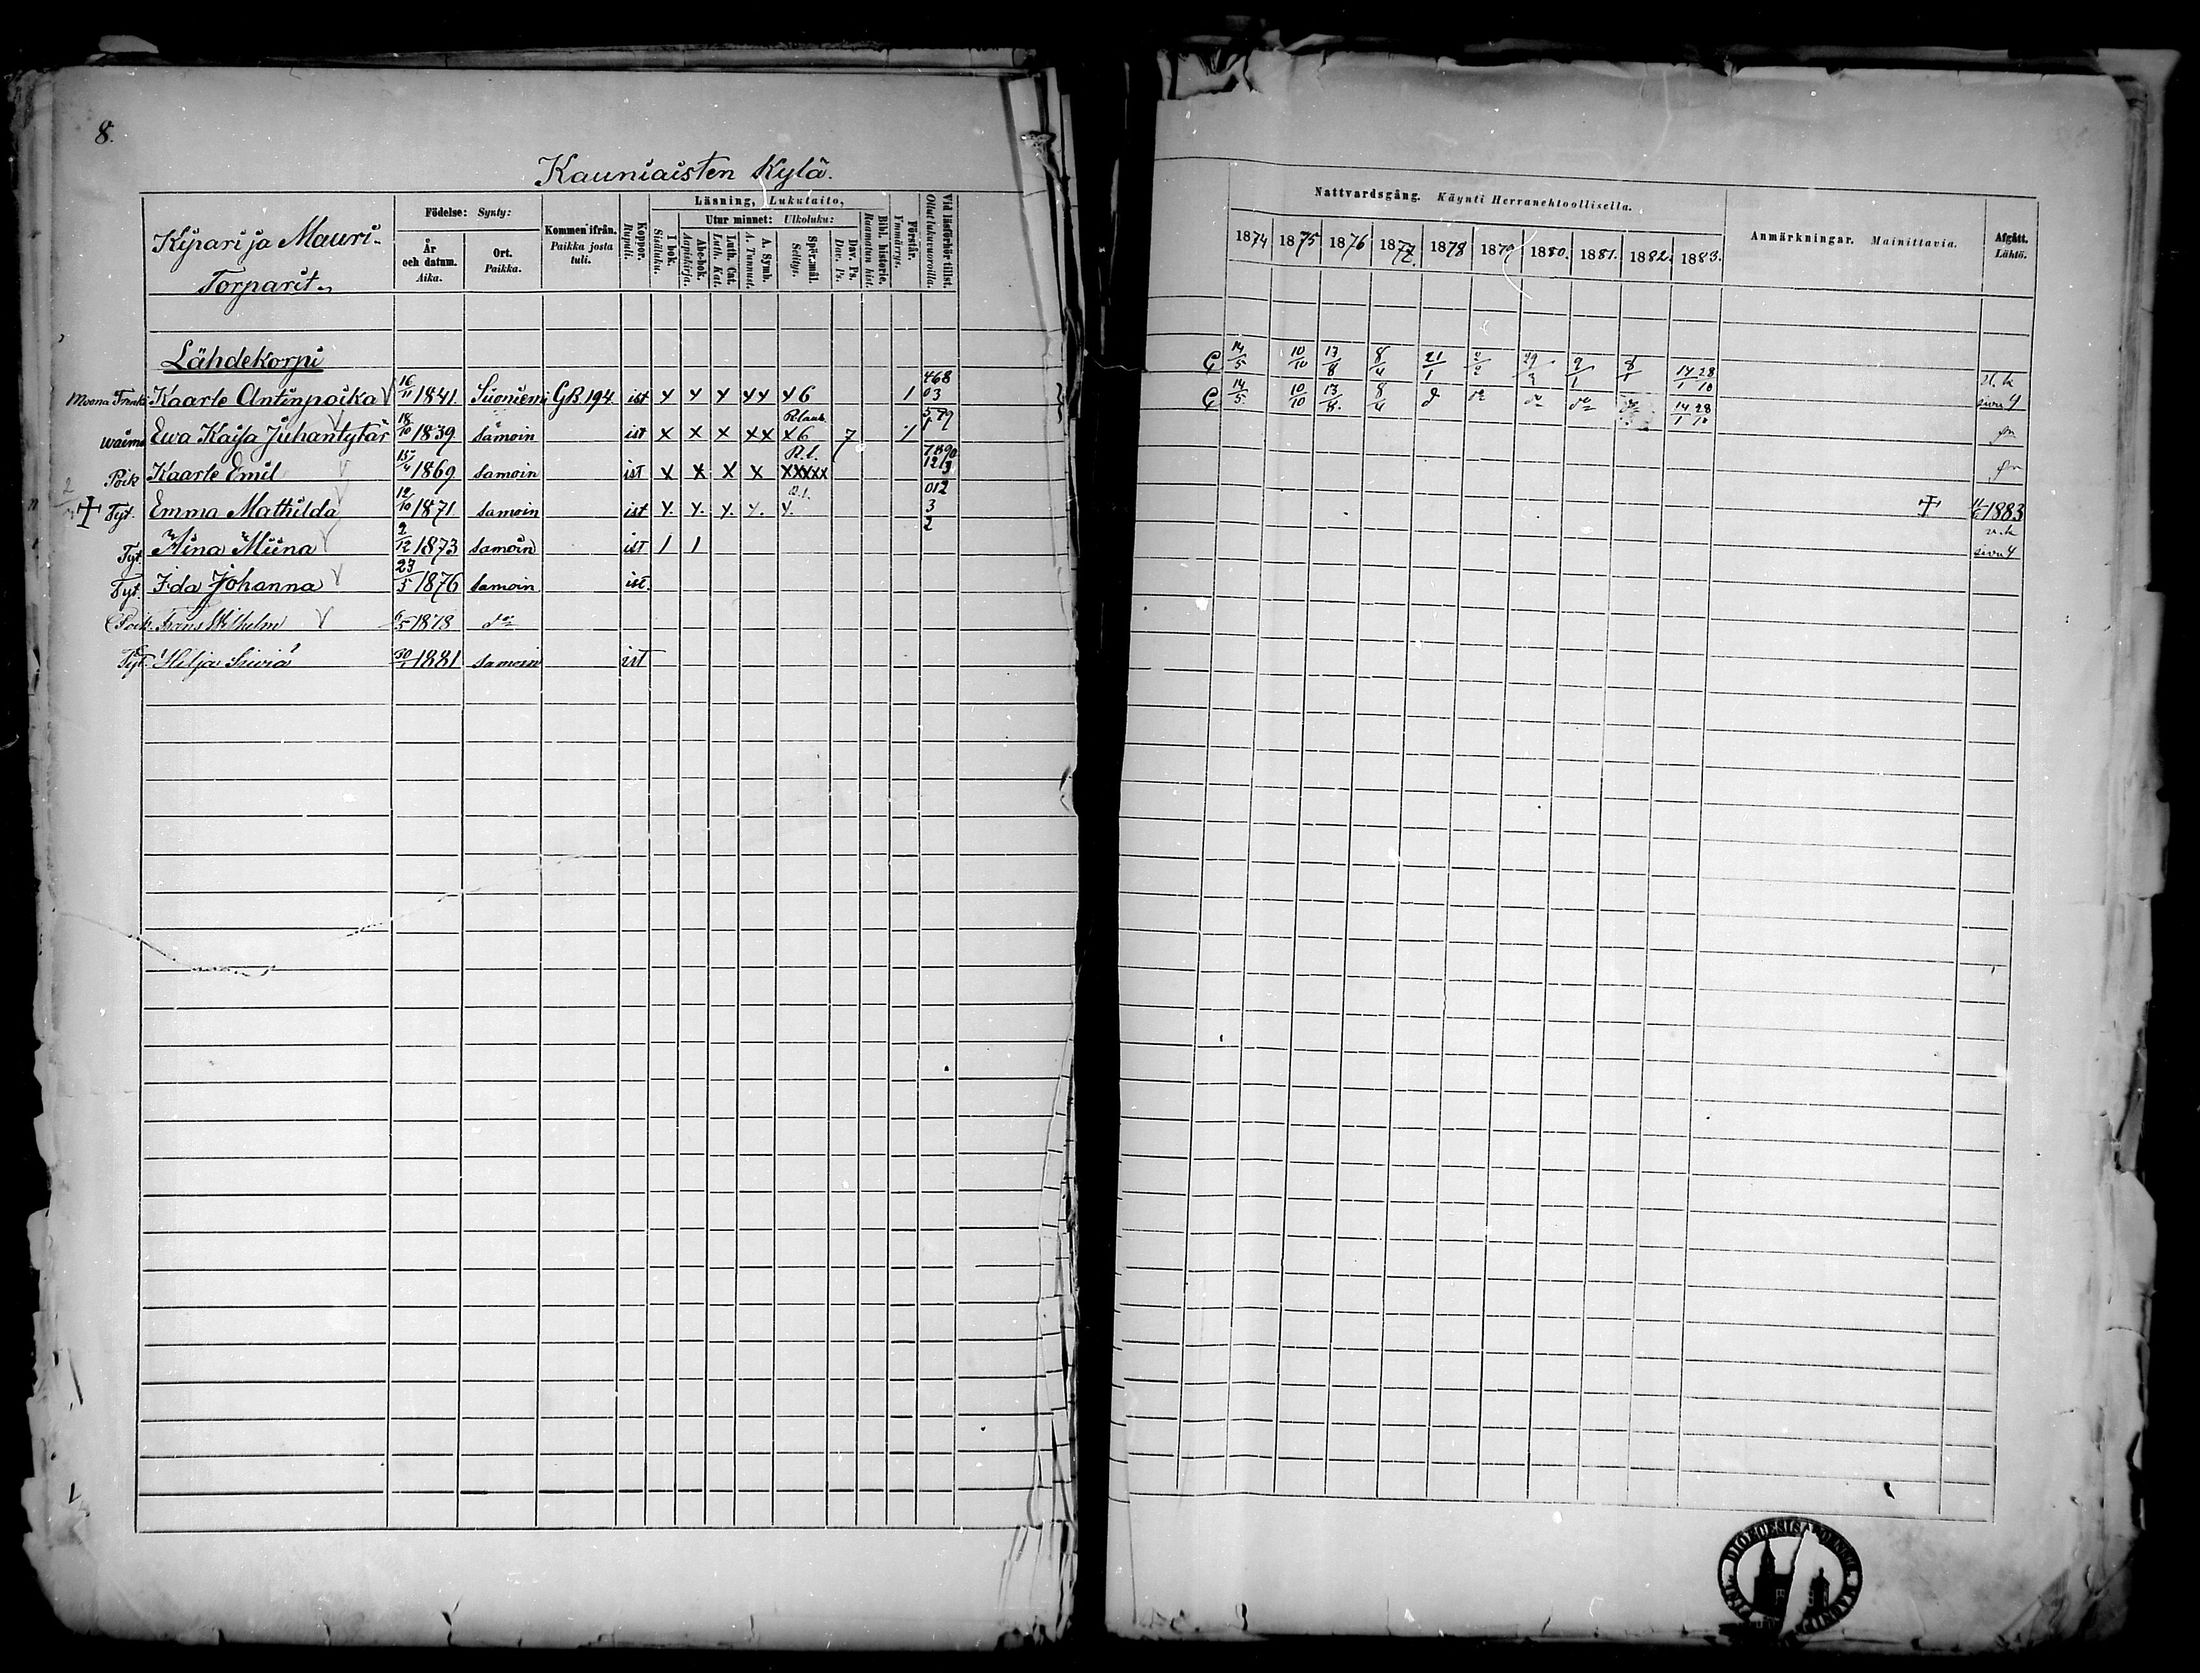 8.
Kauniaisten Kylä.
Kipari ja Mauri-
Torparit.
Födelse: Synty:
År och datum. Aika.
Ort. Paikka.
Kommen ifrån. Paikka josta tuli.
Koppor. Rupuli.
Läsning, Lukutaito,
I bok. Sisäluku.
Utur minnet: Ulkoluku:
Abc-bok. Aapiskirja.
Luth. Cat. Luth. Kat.
A. Symb. A. Tunnust.
Spörsmål. Selitys.
Dav. Ps. Dav. Ps.
Bibl. historie. Raamatun hist.
Förstår. Ymmärrys.
Vid läsförhör tillst. Ollut lukuvuoroilla.
Nattvardsgång. Käynti Herranehtoollisella.
1874 1875 1876 1877. 1878 1879 1880. 1881. 1882. 1883.
Anmärkningar. Mainittavia.
Afgått. Lähtö.
Lähdekorpi
Kaarle Antinpoika 16/11 1841. Suoniemi GB 194. ist x x x xx x6 1 468 03 14/5 10/10 13/8 8/4 21/1 14/1 28/10 sivu 4
waimo Ewa Kaisa Juhantytär 18/10 1839 samoin ist x x x xx x6 7 1 579 1 14/5 10/10 13/8. 8/4 14/1 28/10
Poik Kaarle Emil 15/4 1869 samoin ist x x x x xxxxx 7890 1213
† Tyt. Emma Mathilda 12/10 1871 samoin ist x. x. x. x. x. 012 3 † 1883
Tyt. Aina Miina 2/12 1873 samoin ist 1 1 2 sivu 4
Tyt. Ida Johanna 23/5 1876 samoin ist.
Poik. Frans Wilhelm 1878 do
Tyt Hilja Siviä 1881 samoin ist